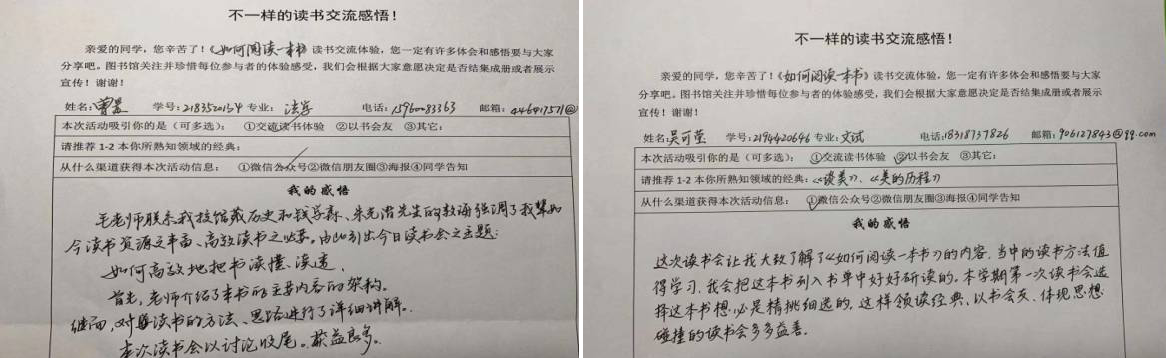 不一样的读书交流感悟！
亲爱的同学，您辛苦了！《如何阅读一本书》读书交流体验，您一定有许多体会和感悟要与大家
分享吧。图书馆关注并珍惜每位参与者的体验感受，我们会根据大家意愿决定是否结集成册或者展示
宣传！谢谢！
姓名： 学号：2183520154 专业：法学 电话：15960083363 邮箱：446417571@
本次活动吸引你的是（可多选）： ①交流读书体验 ②以书会友 ③其它：
请推荐 1-2 本你所熟知领域的经典：
从什么渠道获得本次活动信息： ①微信公众号②微信朋友圈③海报④同学告知
我的感悟
毛老师联系我校馆藏历史和钱学森、朱光潜先生的教诲强调了我辈如
今读书资源之丰富、高效读书之必要。由此引出今日读书会之主题：
如何高效地把书读懂、读透。
首先，老师介绍了本书的主要内容的架构。
继而，对读书的方法、思路进行了详细讲解。
本次读书会以讨论收尾。获益良多。
不一样的读书交流感悟！
亲爱的同学，您辛苦了！《如何阅读一本书》读书交流体验，您一定有许多体会和感悟要与大家
分享吧。图书馆关注并珍惜每位参与者的体验感受，我们会根据大家意愿决定是否结集成册或者展示
宣传！谢谢！
姓名：吴可莹 学号：2194420646 专业：文试 电话：18318737826 邮箱：906127843@qq.com
本次活动吸引你的是（可多选）： ①交流读书体验 ②以书会友 ③其它：
请推荐 1-2 本你所熟知领域的经典：《谈美》、《美的历程》
从什么渠道获得本次活动信息： ①微信公众号②微信朋友圈③海报④同学告知
我的感悟
这次读书会让我大致了解了《如何阅读一本书》的内容，当中的读书方法值
得学习，我会把这本书列入书单中好好研读的。本学期第一次读书会选
择这本书想必是精挑细选的，这样领读经典，以书会友、体现思想
碰撞的读书会多多益善。